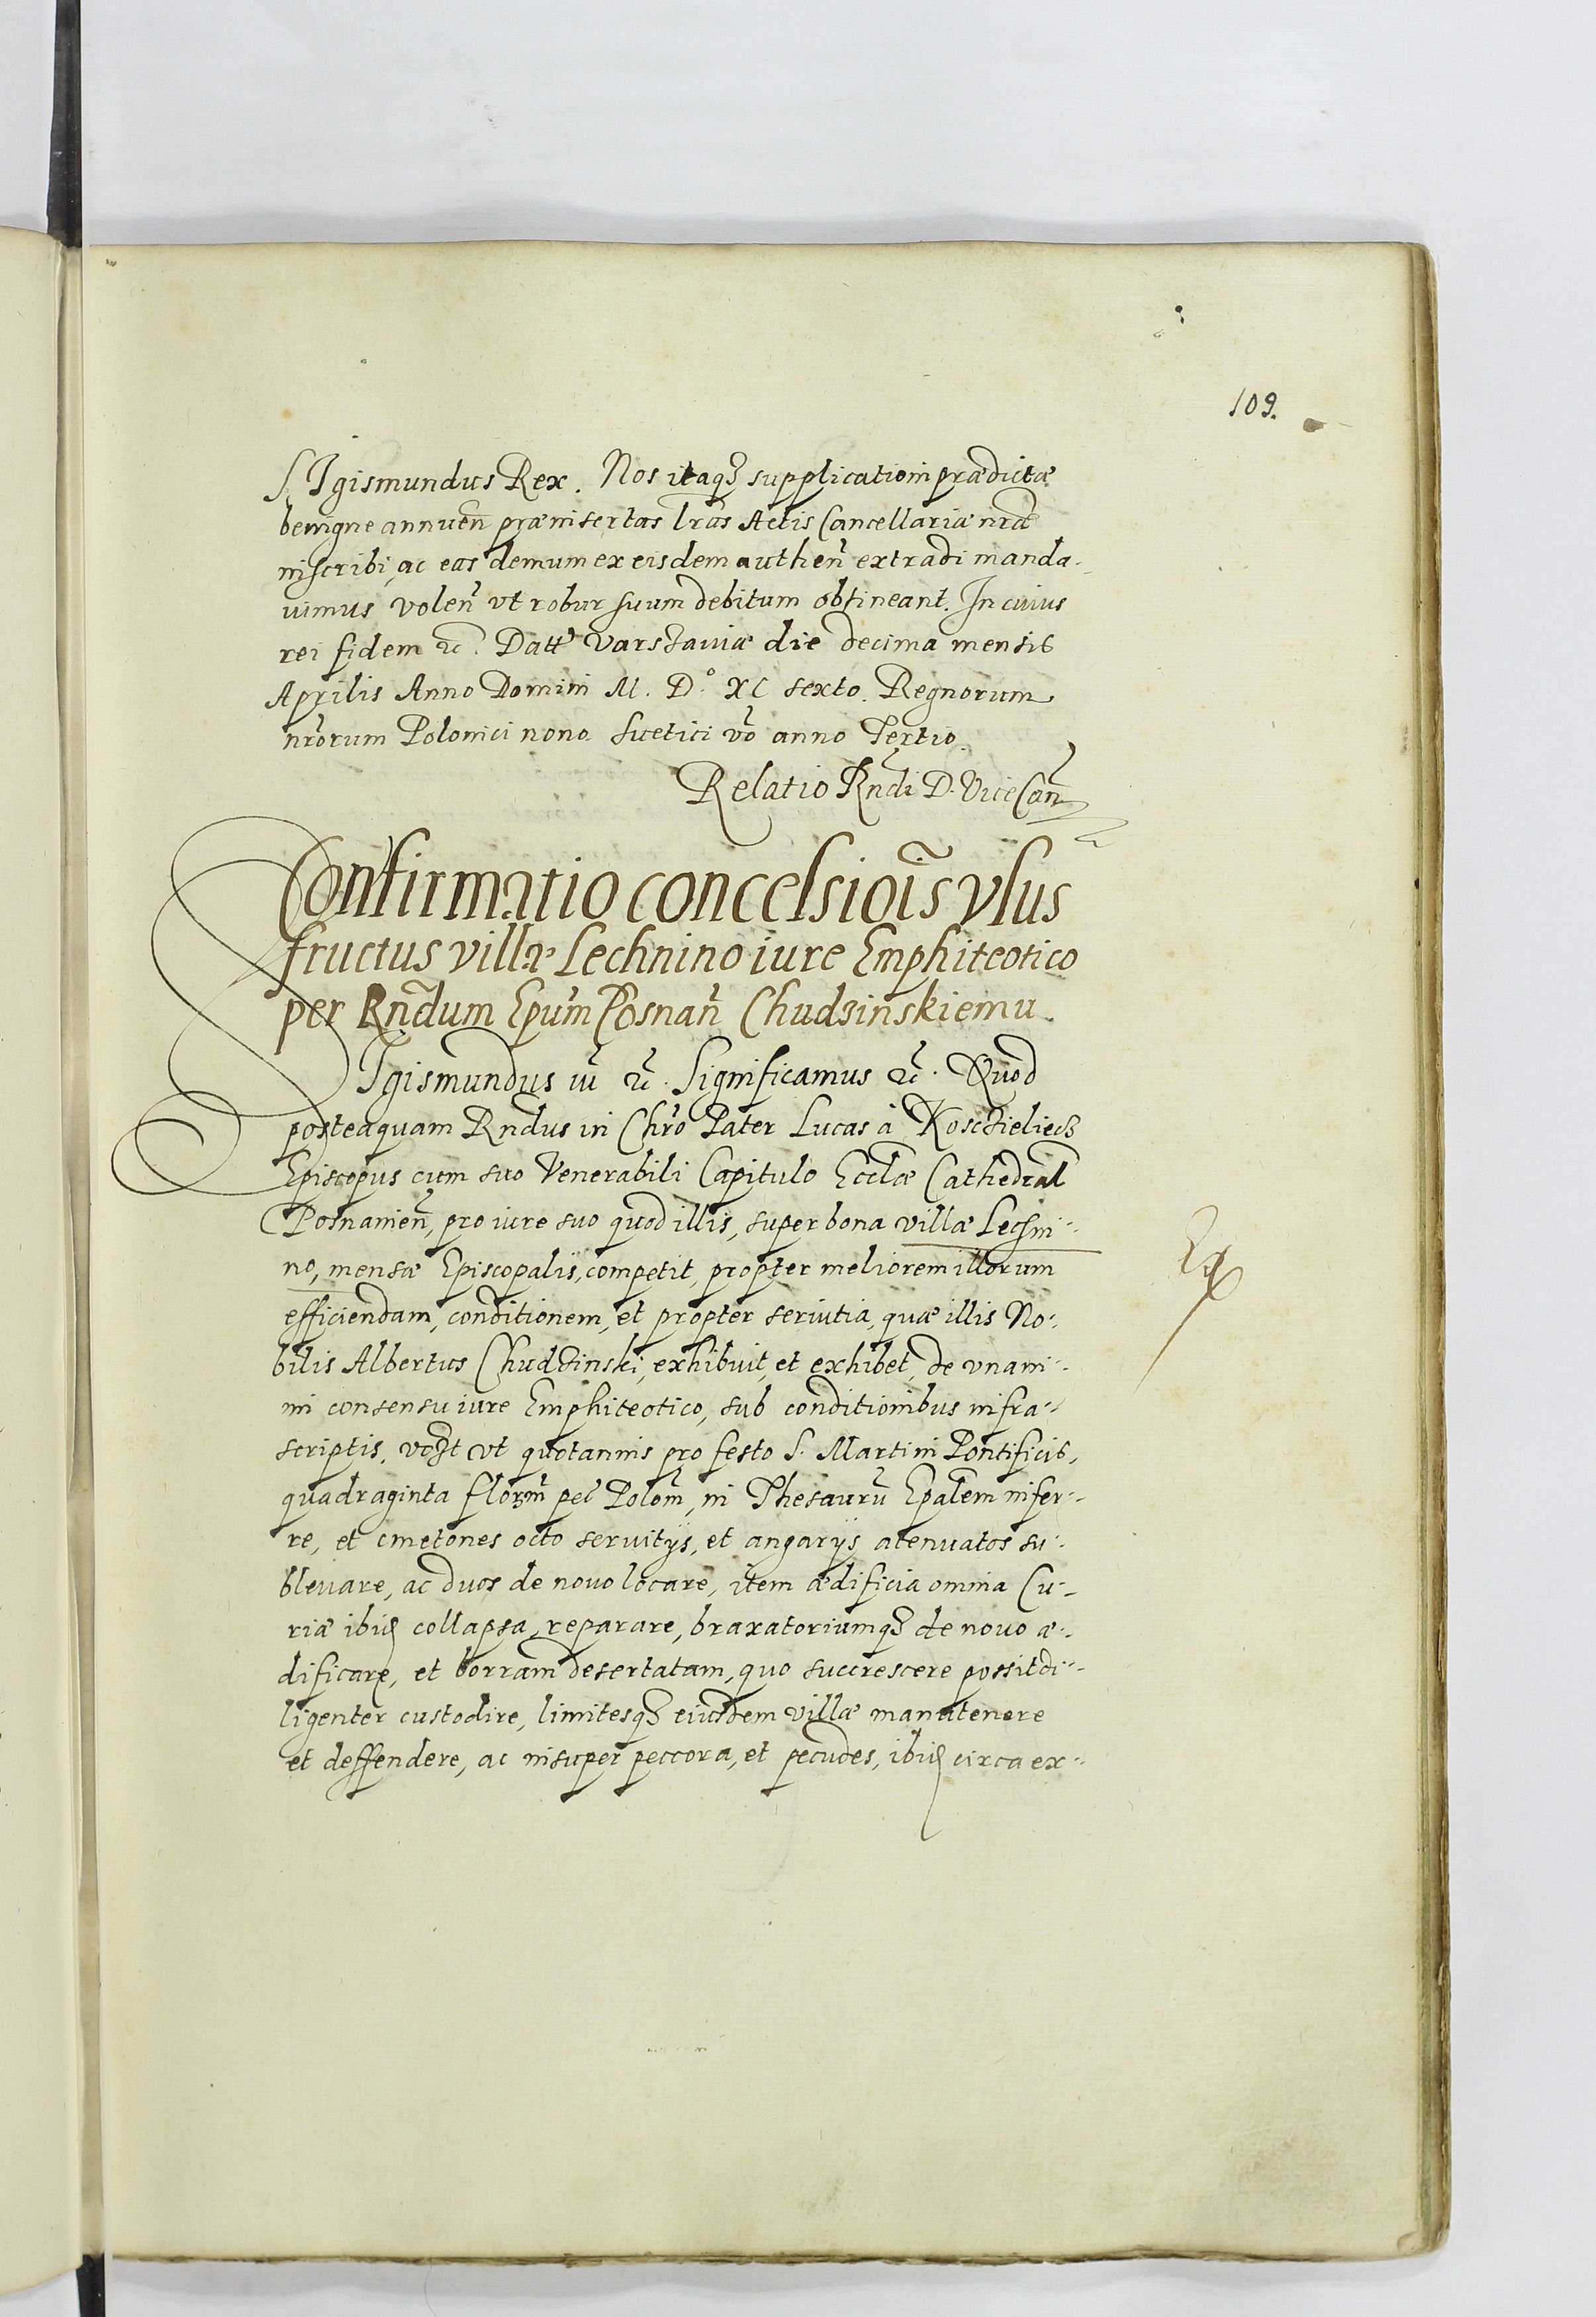 109.
SIgismundus Rex. Nos itaqȝ supplicationi prædictæ
benigne annuen̄ præinsertas lr̄as Actis Cancellariæ nr̄æ
inscribi, ac eas demum ex eisdem authen̄ extradi manda-
uimus volen̄ vt robur suum debitum obtineant. In cuius
rei fidem ꝛc. Datt̓ Varschauiæ die decima mensis
Aprilis Anno Domini M. D.° XC sexto. Regnorum
nr̄orum Poloniæ nono. Suetici vō anno Tertio.
Relatio Rn̄di D. ViceCan̄
Confirmatio concessiōis vsus
fructus villæ Lechnino iure Emphiteotico
per Rn̄dum Epūm Posnan̄ Chudzinskiemu.
SIgismundus iii ꝛc. Significamus ꝛc. Quod
posteaquam Rn̄dus in Chrō Pater Lucas à Kosczielecz
Episcopus cum suo Venerabili Capitulo Ecclæ Cathedral̄
Posnanien̄, pro iure suo quod illis, super bona villæ Lechni-
no, mensæ Episcopalis, competit, propter meliorem illorum
efficiendam, conditionem, et propter seruitia, quæ illis No-
bilis Albertus Chudzinski, exhibuit, et exhibet, de vnani-
mi consensu iure Emphiteotico, sub conditionibus infra-
scriptis, vt quotannis pro festo S. Martini Pontificis,
quadraginta florm̄ pec̄ Polom̄, in Thesaurū Ep̄alem infer-
re, et cmetones octo seruitijs, et angarijs atenuatos su-
bleuare, ac duos de nouo locare, item ædificia omnia Cu-
riæ ibid̄ collapsa, reparare, braxatoriumqȝ de nouo æ-
dificare, et borram desertatam, quo succrescere possit di-
ligenter custodire, limitesqȝ eiusdem villæ manutenere
et deffendere, ac insuper peccora, et pecudes, ibid̄ circa ex-